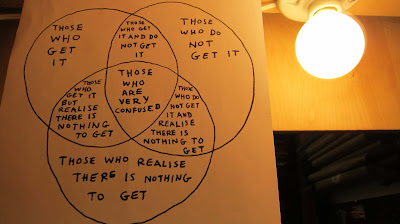 THOSE
WHO
GET
IT
THOSE
WHO GET
IT AND DO
NOT GET
IT
THOSE
WHO DO
NOT
GET IT
THOSE
WHO
GET IT
BUT
REALISE
THERE IS
NOTHING
TO GET
THOSE
WHO
ARE
VERY
CONFUSED
THOSE
WHO DO
NOT GET
IT AND
REALISE
THERE IS
NOTHING TO
GET
THOSE WHO REALISE
THERE IS NOTHING
TO GET